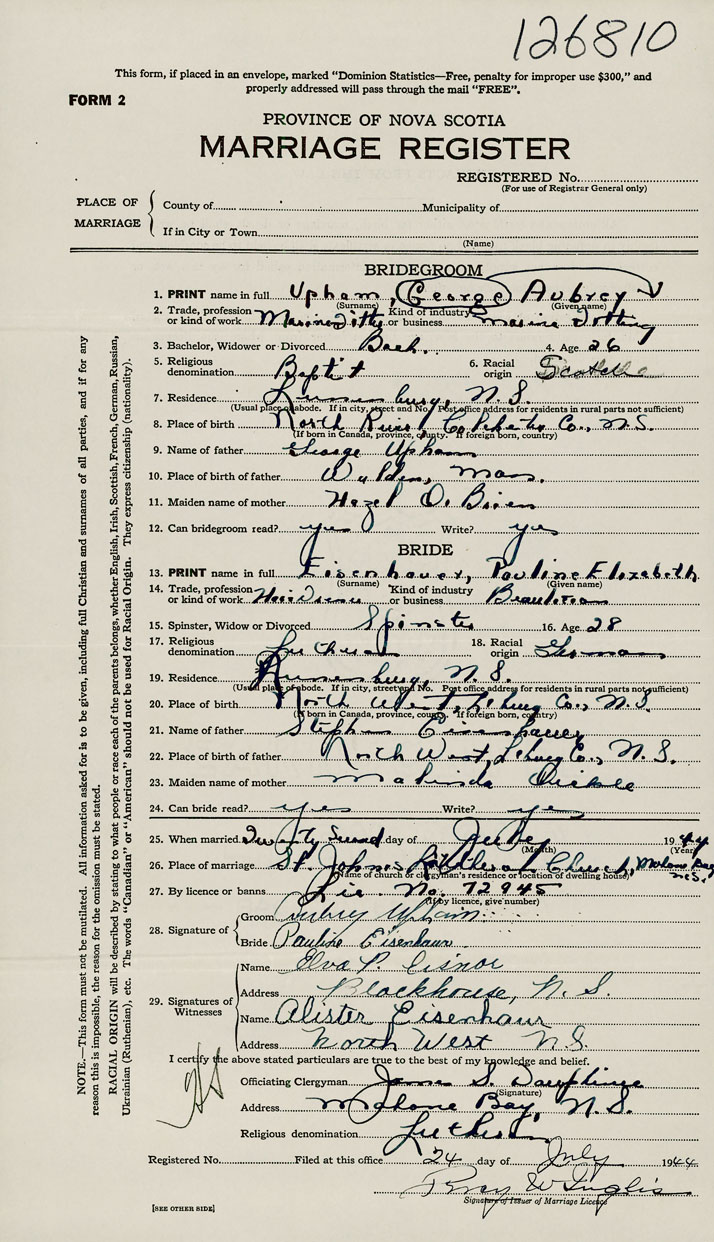 126810
This form, if placed in an envelope, marked "Dominion Statistics—Free, penalty for improper use $300," and
properly addressed will pass through the mail "FREE".
FORM 2
PROVINCE OF NOVA SCOTIA
MARRIAGE REGISTER
REGISTERED No.
(For use of Registrar General only)
PLACE OF MARRIAGE
County of Municipality of
If in City or Town
(Name)
BRIDEGROOM
1. PRINT name in full Upham, George Aubrey
(Surname) (Given name)
2. Trade, profession or kind of work Kind of industry or business Marine
3. Bachelor, Widower or Divorced Bach. 4. Age 26
5. Religious denomination Baptist 6. Racial origin
7. Residence Lunenburg, N.S.
(Usual place of abode. If in city, street and No. Post office address for residents in rural parts not sufficient)
8. Place of birth North River, Co., N.S.
(If born in Canada, province, county. If foreign born, country)
9. Name of father George Upham
10. Place of father Walden, Mass.
11. Maiden name of mother Hazel O.Brien
12. Can bridegroom read? yes Write? yes
BRIDE
13. PRINT name in full Eisenhauer, Pauline Elizabeth
(Surname) (Given name)
14. Trade, profession or kind of work Kind of industry or business
15. Spinster, Widow or Divorced Spinster 16. Age 28
17. Religious denomination Lutheran 18. Racial origin German
19. Residence Lunenburg, N.S.
(Usual place of abode. If in city, street and No. Post office address for residents in rural parts not sufficient)
20. Place of birth North West, L'burg Co., N.S.
(If born in Canada, province, county. If foreign born, country)
21. Name of father Stephen Eisenhauer
22. Place of birth of father North West, L'burg Co., N.S.
23. Maiden name of mother Malinda
24. Can bride read? yes Write? yes
25. When married Twenty Second day of July 1944
(Month) (Year)
26. Place of marriage St. John's Lutheran Church, Mahone Bay N.S.
(Name of church or clergyman's residence or location of dwelling house)
27. By licence or banns Lic. No. 72945
(If by licence, give number)
28. Signature of
Groom Aubrey Upham
Bride Pauline Eisenhaur
29. Signatures of Witnesses
Name Elva P. Eisnor
Address Blockhouse, N.S.
Name Alister Eisenhaur
Address North West N.S.
I certify the above stated particulars are true to the best of my knowledge and belief.
Officiating Clergyman James S. Dauphinee
(Signature)
Address Mahone Bay, N.S.
Religious denomination Lutheran
Registered No. Filed at this office 24 day of July 1944
Percy W Inglis
Signature of Issuer of Marriage Licence
[SEE OTHER SIDE]
NOTE.—This form must not be mutilated. All information asked for is to be given, including full Christian and surnames of all parties, and if for any
reason this is impossible, the reason for the omission must be stated.
RACIAL ORIGIN will be described by stating to what people or race each of the parents belongs, whether English, Irish, Scottish, French, German, Russian,
Ukrainian (Ruthenian), etc. The words "Canadian" or "American" should not be used for Racial Origin. They express citizenship (nationality).